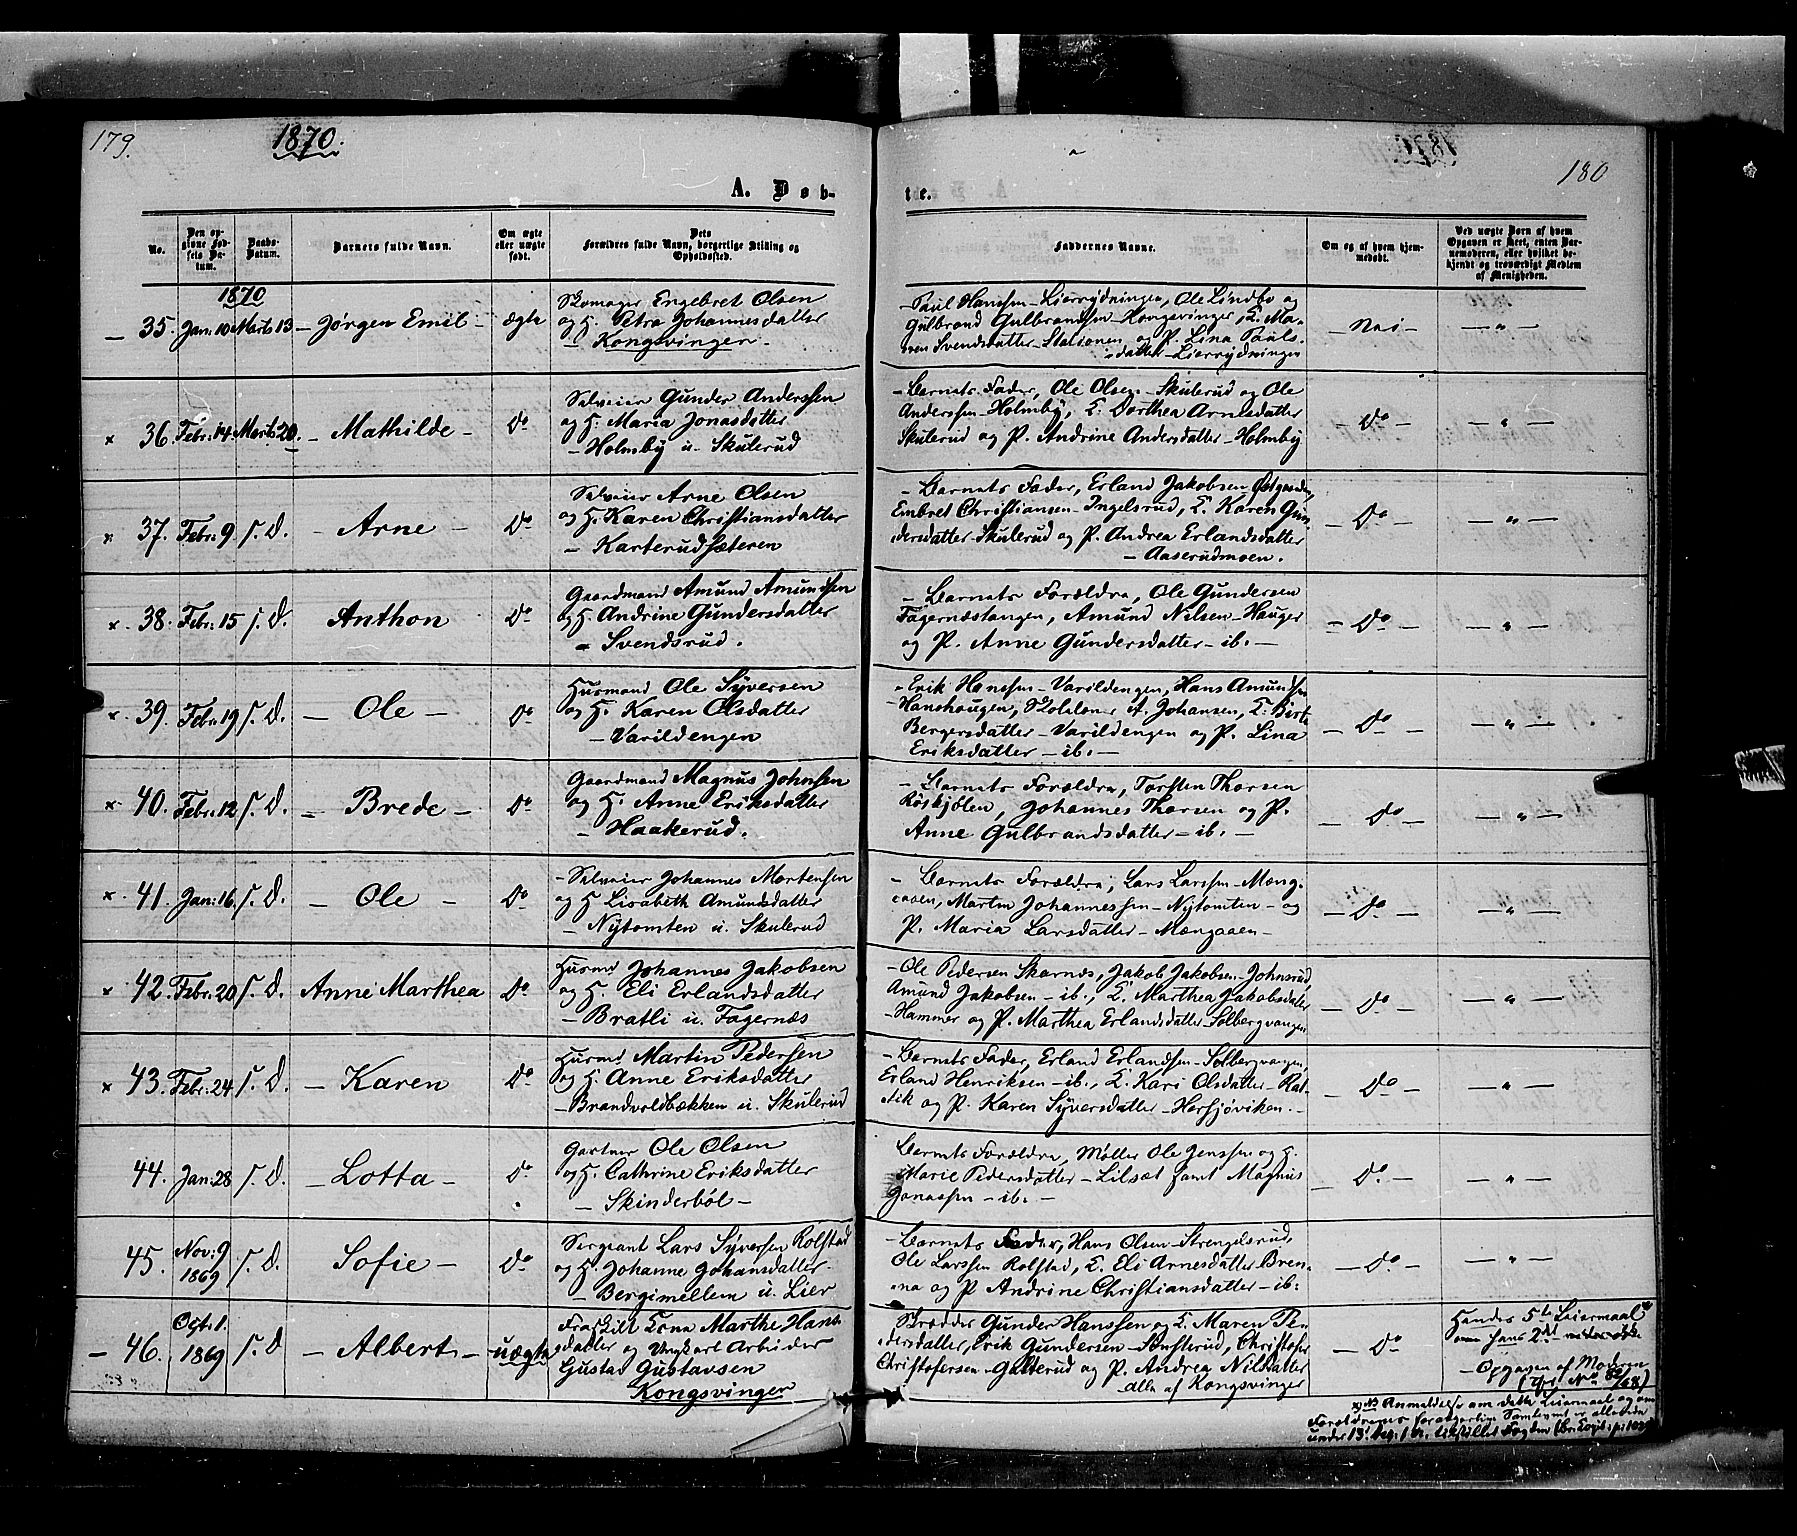 179.
1870.
1870.
180
A. Døb-
te.
No.
Den opgivne Fødsels Datum.
Daabs-Datum.
Barnets fulde Navn.
Om ægte eller uægte født.
Dets Forældres fulde Navn, borgerlige Stilling og Opholdssted.
Faddernes Navne.
Om og af hvem hjemmedøbt.
Ved uægte Børn af hvem Opgaven er skeet, enten Barnemoderen, eller hvilket bekjendt og troværdigt Medlem af Menigheden.
1870
35. Jan: 10 Marts 13 – Jørgen Emil – ægte
Skomager Engebret Olsen
og H. Petra Johannesdatter
– Kongsvinger –
– Paul Hanssen – Lierrydningen, Ole Lindbo og
Gulbrand Gulbrandsen – Kongsvinger, E. Ma-
ren Svendsdatter – Stationen og P. Lina Pauls-
datter – Lierrydningen
– Nei –
– " –
x 36. Febr: 14 Marts 20. – Mathilde – Do
Selveier Gunder Anderssen
og H. Maria Jonasdatter
– Holmby u. Skulerud
– Barnets Fader, Ole Olsen – Skulerud og Ole
Anderssen – Holmby, E. Dorthea Arnesdatter
Skulerud og P. Andrine Andersdatter – Holmby
– Do –
– " –
x 37. Febr: 9 s. D. – Arne – Do
Selveier Arne Olsen
og H. Karen Christiansdatter
– Karterudsæteren
– Barnets Fader, Erland Jakobsen Østgaarden,
Embret Christiansen – Ingelsrud, E. Karen Gun-
dersdatter – Skulerud og P. Andrea Erlandsdatter
– Aaserudmoen.
– Do –
– " –
x 38. Febr: 15 s. D. Anthon Do
Gaardmand Amund Amundsen
og H. Andrine Gundersdatter
– Svendsrud.
– Barnets Forældre, Ole Gundersen
Fagernæstangen, Amund Nilsen – Hauger
og P. Anne Gundersdatter – ib. –
– Do –
– " –
x 39. Febr: 19 s. D. – Ole – Do
Husmand Ole Syversen
og H. Karen Olsdatter
– Varildengen
– Erik Hanssen – Varildengen, Hans Amundsen
– Hanshaugen, A. Johansen, E. Birte
Bergersdatter – Varildengen og P. Lina
Eriksdatter – ib. –
– Do –
– " –
x 40. Febr: 12 s. D. – Brede – Do
Gaardmand Magnus Johnsen
og H. Anne Eriksdatter
– Haakerud.
– Barnets Forældre, Torsten Thorsen
Røskjølen, Johannes Thorsen og P.
Anne Gulbrandsdatter – ib. –
– Do
– " –
x 41. Jan: 16 s. D. – Ole – Do
– Selveier Johannes Mortensen
og H Lisabeth Amundsdatter
– Nytomten u. Skulerud
– Barnets Forældre, Lars Larssen – Mæng-
aaen, Martin Johannessen – Nytomten – og
P. Maria Larsdatter – Mængaaen –
– Do –
– " –
x 42. Febr: 20 s. D. Anne Marthea Do
Husmd Johannes Jakobsen
og H. Eli Erlandsdatter
– Bratli u. Fagernæs
– Ole Pedersen Skarnæs, Jakob Jakobsen – Johnsrud,
Amund Jakobsen – ib., E. Marthea Jakobsdatter
– Hammer og P. Marthea Erlandsdatter – Solbergvangen
– Do –
– " –
x 43. Febr: 24 s. D. – Karen Do
Husmd Martin Pedersen
og H. Anne Eriksdatter
– Brandvoldbækken u. Skulerud
– Barnets Fader, Erland Erlandsen – Solbergvangen,
Erland Henriksen – ib., E. Kari Olsdatter – Rat-
vik og P. Karen Syversdatter – Hersjøviken. –
– Do –
– " –
44. Jan: 28 s. D. – Lotta – Do
Gartner Ole Olsen
og H. Cathrine Eriksdatter
– Skinderbøl –
Barnets Forældre, Møller Ole Jenssen og H.
Marie Pedersdatter – Lilsæt samt Magnus
Jonassen – ib. –
– Do –
– " –
45. Nov: 9 1869 s. D. Sofie – Do
Sergeant Lars Syversen Rolstad
og H. Johanne Johansdatter
– Bergimellem u. Lier
– Barnets Fader, Hans Olsen – Strengelsrud,
Ole Larssen Rolstad, E. Eli Arnesdatter Bren-
na og P. Andrine Christiansdatter – ib:
– Do –
– " –
– 46. Oct: 1. 1869 s. D – Albert – uægte
Fraskilt Kone Marthe Hans-
datter og Ungkarl Arbeider
Gustav Gustavsen
Kongsvinger
Brødder Gunder Hanssen og E. Maren Pe-
dersdatter, Erik Gundersen – Sønsterud, Christofer
Christofersen – Galterud og P. Andrea Nilsdatter
alle af Kongsvinger
– Do
Hendes 5te Leiermaal
hans 2det
– Opgaven af Moderen
(cfr. No 82/68)
Anmeldelse om dette Leiermaal og om
Forældrenes Samlevnet er allerede
under 13